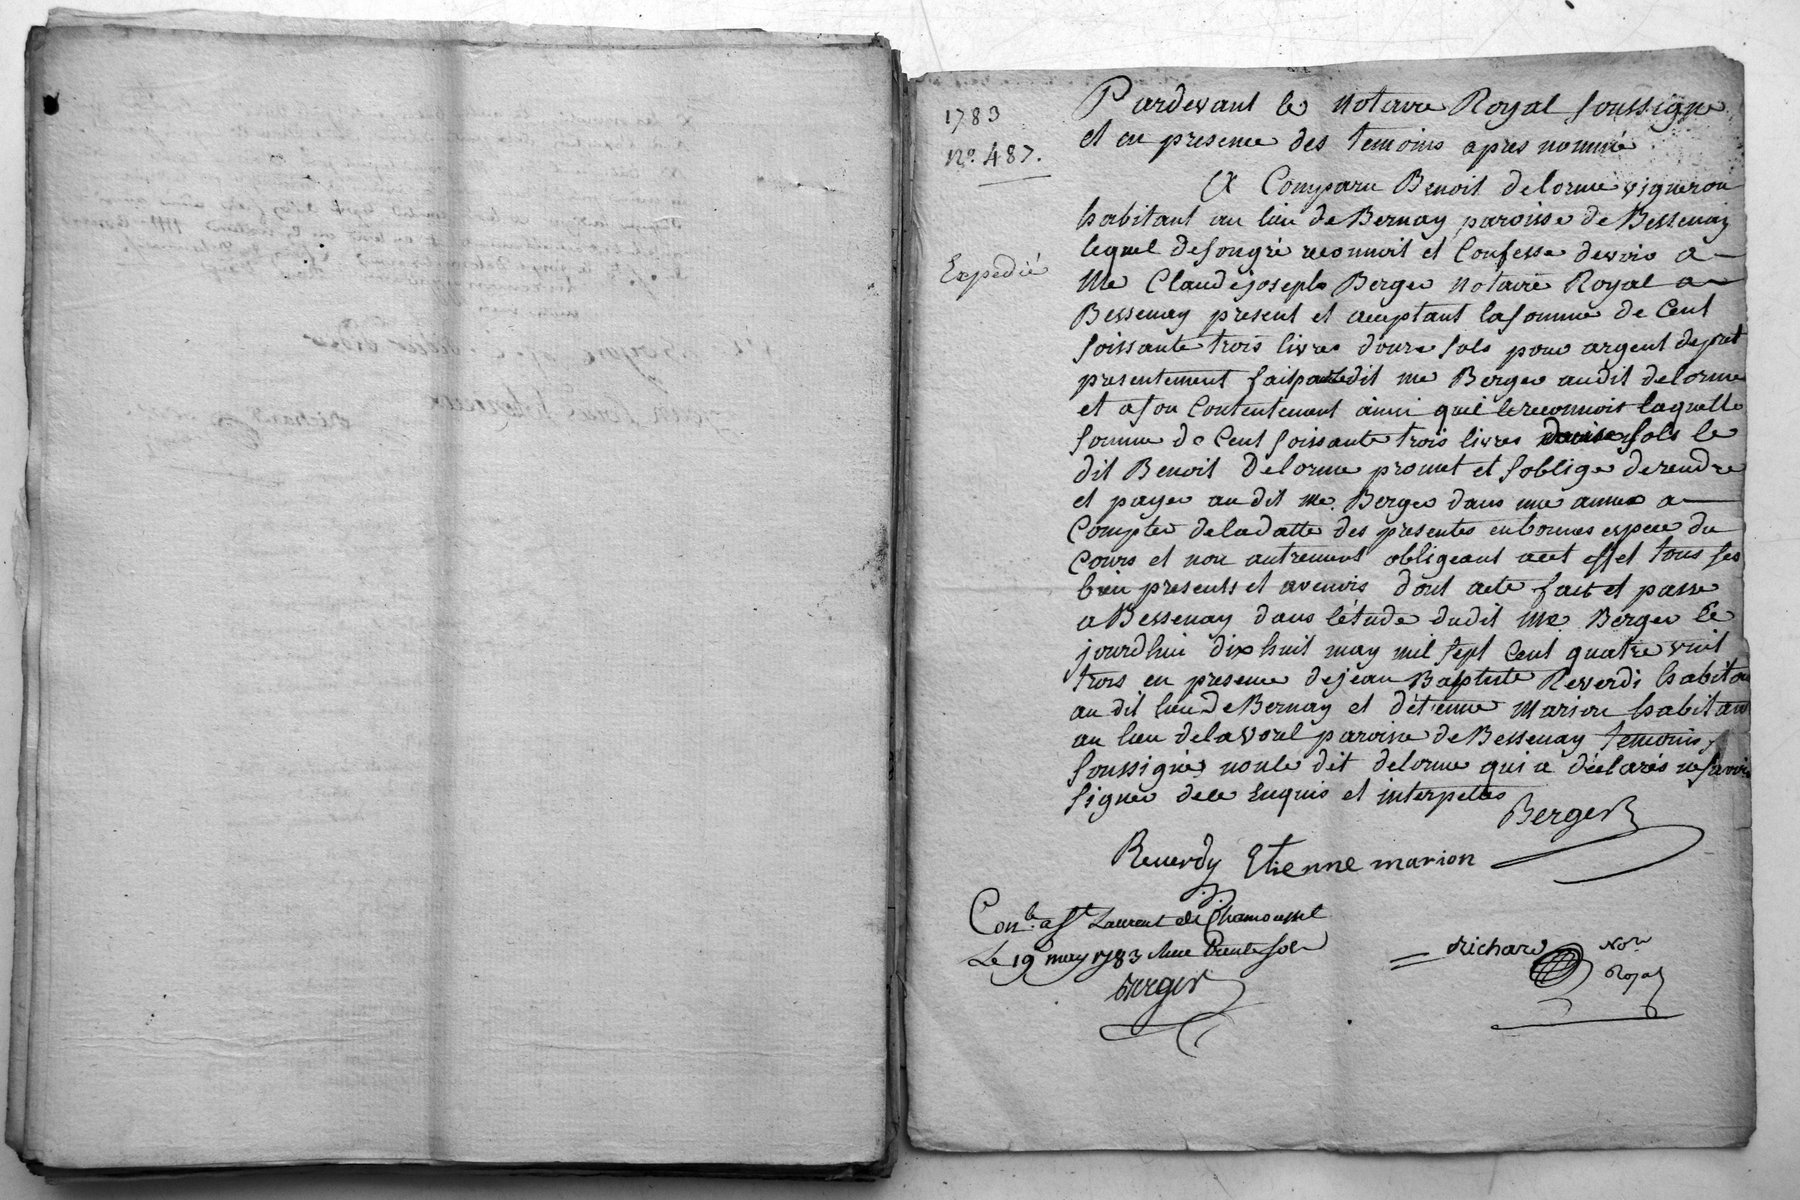 1783
No. 487.
Expedié
Pardevant le notaire Royal soussigne
et en presence des temoins apres nommé
A Comparu Benoit Delorme vigneron
habitant au lieu de Bernay paroisse de Bessenay
lequel de songré reconnoit et Confesse devoir a
Me Claude joseph Berger notaire Royal a
Bessenay present et acceptant la somme de Cent
soissante trois livres douze sols pour argent de pret
presentement fait par ledit me Berger audit delorme
et a son Contentement ainsi quil le reconnoit laquelle
somme de Cent soissante trois livres douze sols le
dit Benoit Delorme promet et soblige de rendre
et payer au dit me. Berger dans une annee a
Compter de la datte des presentes en bonnes espece du
Cours et non autrement obligeant a cet effet tous ses
bien presents et avenirs dont acte fait et passe
a Bessenay dans létude dudit me Berger le
jourdhui dix huit may mil sept Cent quatre vint
trois en presence de jean Baptiste Reverdi habitan
au dit lieu de Bernay et détienne Marion habitant
au lieu de lavorel paroisse de Bessenay temoins
soussignés non le dit delorme qui a déclarés ne savoir
signer de ce Enquis et interpellés
Berger
Reuerdy Etienne marion
Conle. a St Laurent de Chamousset
Le 19 may 1783 Reçu trente sols
Berger
Richard Nore
Royal